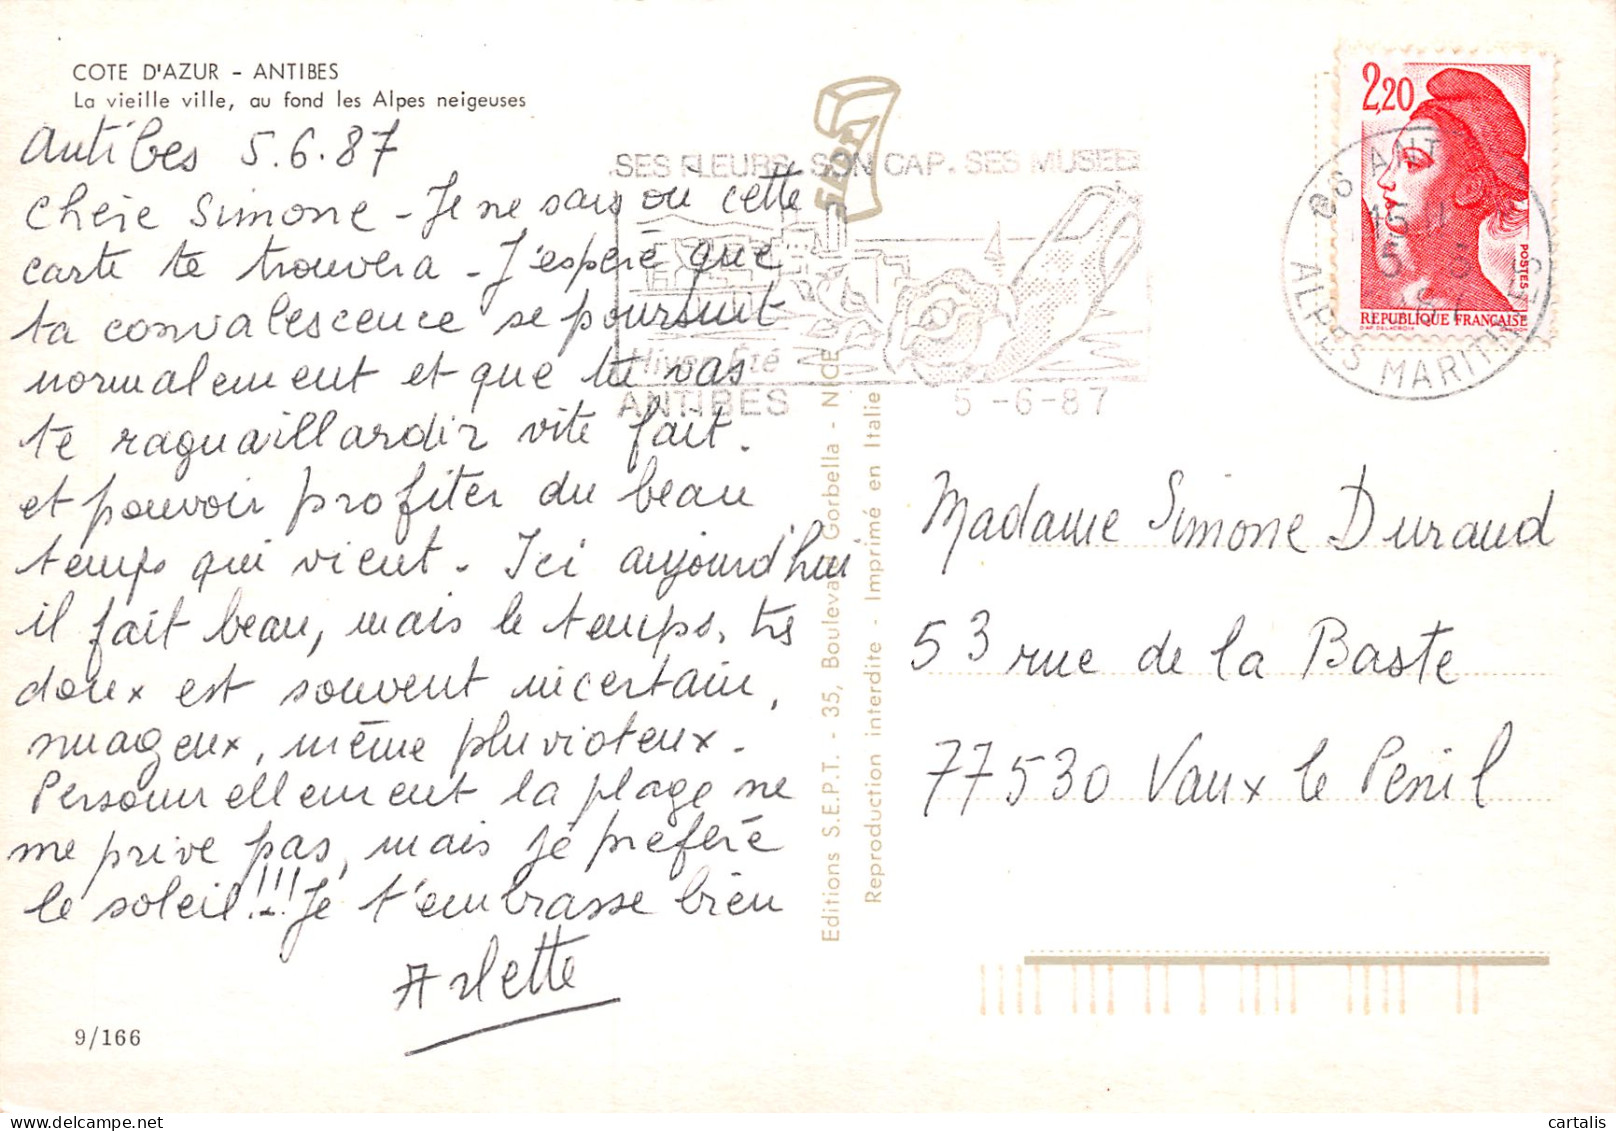 COTE D'AZUR - ANTIBES
La vieille ville, au fond les Alpes neigeuses
Antibes 5.6.87
Chère Simone - Je ne sais où cette
carte te trouvera - J'espère que
ta convalescence se poursuit
normalement et que tu vas
te raguaillardir vite fait.
et pouvoir profiter du beau
temps qui vient. Ici aujourd'hui
il fait beau, mais le temps, très
doux est souvent incertain,
nuageux, même pluvioteux.
Personnellement la plage ne
me prive pas, mais je préfère
le soleil!!! Je t'embrasse bien
Arlette
9/166
SEPT
Editions S.E.P.T. - 35, Boulevard Gorbella - NICE
Reproduction interdite - Imprimé en Italie
.SES FLEURS. SON CAP. SES MUSEES
Hiver Été
ANTIBES 5-6-87
2,20
POSTES
REPUBLIQUE FRANÇAISE
D'AP. DELACROIX GANDON
06 ANTIBES
ALPES MARITIMES
Madame Simone Durand
53 rue de la Baste
77530 Vaux le Penil
cartalis